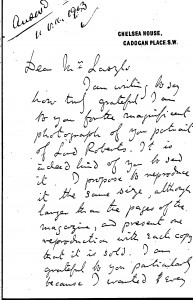 CHELSEA HOUSE,
CADOGAN PLACE. S.W.
Dear Mr Laszlo
I am writing to say
how truly grateful I am
to you for the magnificent
photograph of your portrait
of Lord Roberts. It is
indeed kind of you to send
it. I propose to reproduce
it the same size, although
larger than the pages of the
magazine, and present one
reproduction with each copy
that it is sold. I am
grateful to you particularly
because I wanted